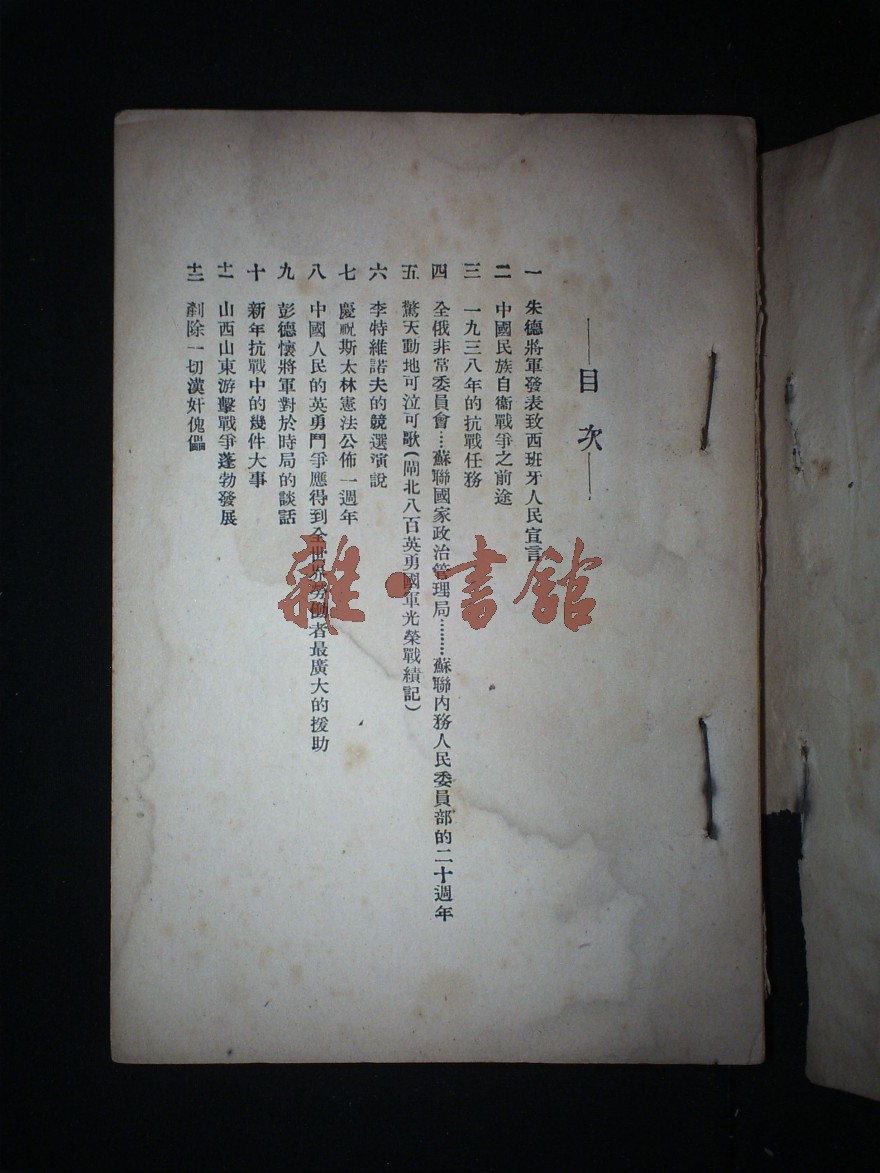 ——目次——
一 朱德將軍發表致西班牙人民宣言
二 中國民族自衞戰爭之前途
三 一九三八年的抗戰任務
四 全俄非常委員會…蘇聯國家政治管理局………蘇聯內務人民委員部的二十週年
五 驚天動地可泣可歌(閘北八百英勇國軍光榮戰績記)
六 李特維諾夫的競選演說
七 慶祝斯太林憲法公佈一週年
八 中國人民的英勇鬥爭應得到全世界勞働者最廣大的援助
九 彭德懷將軍對於時局的談話
十 新年抗戰中的幾件大事
十一 山西山東游擊戰爭蓬勃發展
十二 剷除一切漢奸傀儡
雜·書館